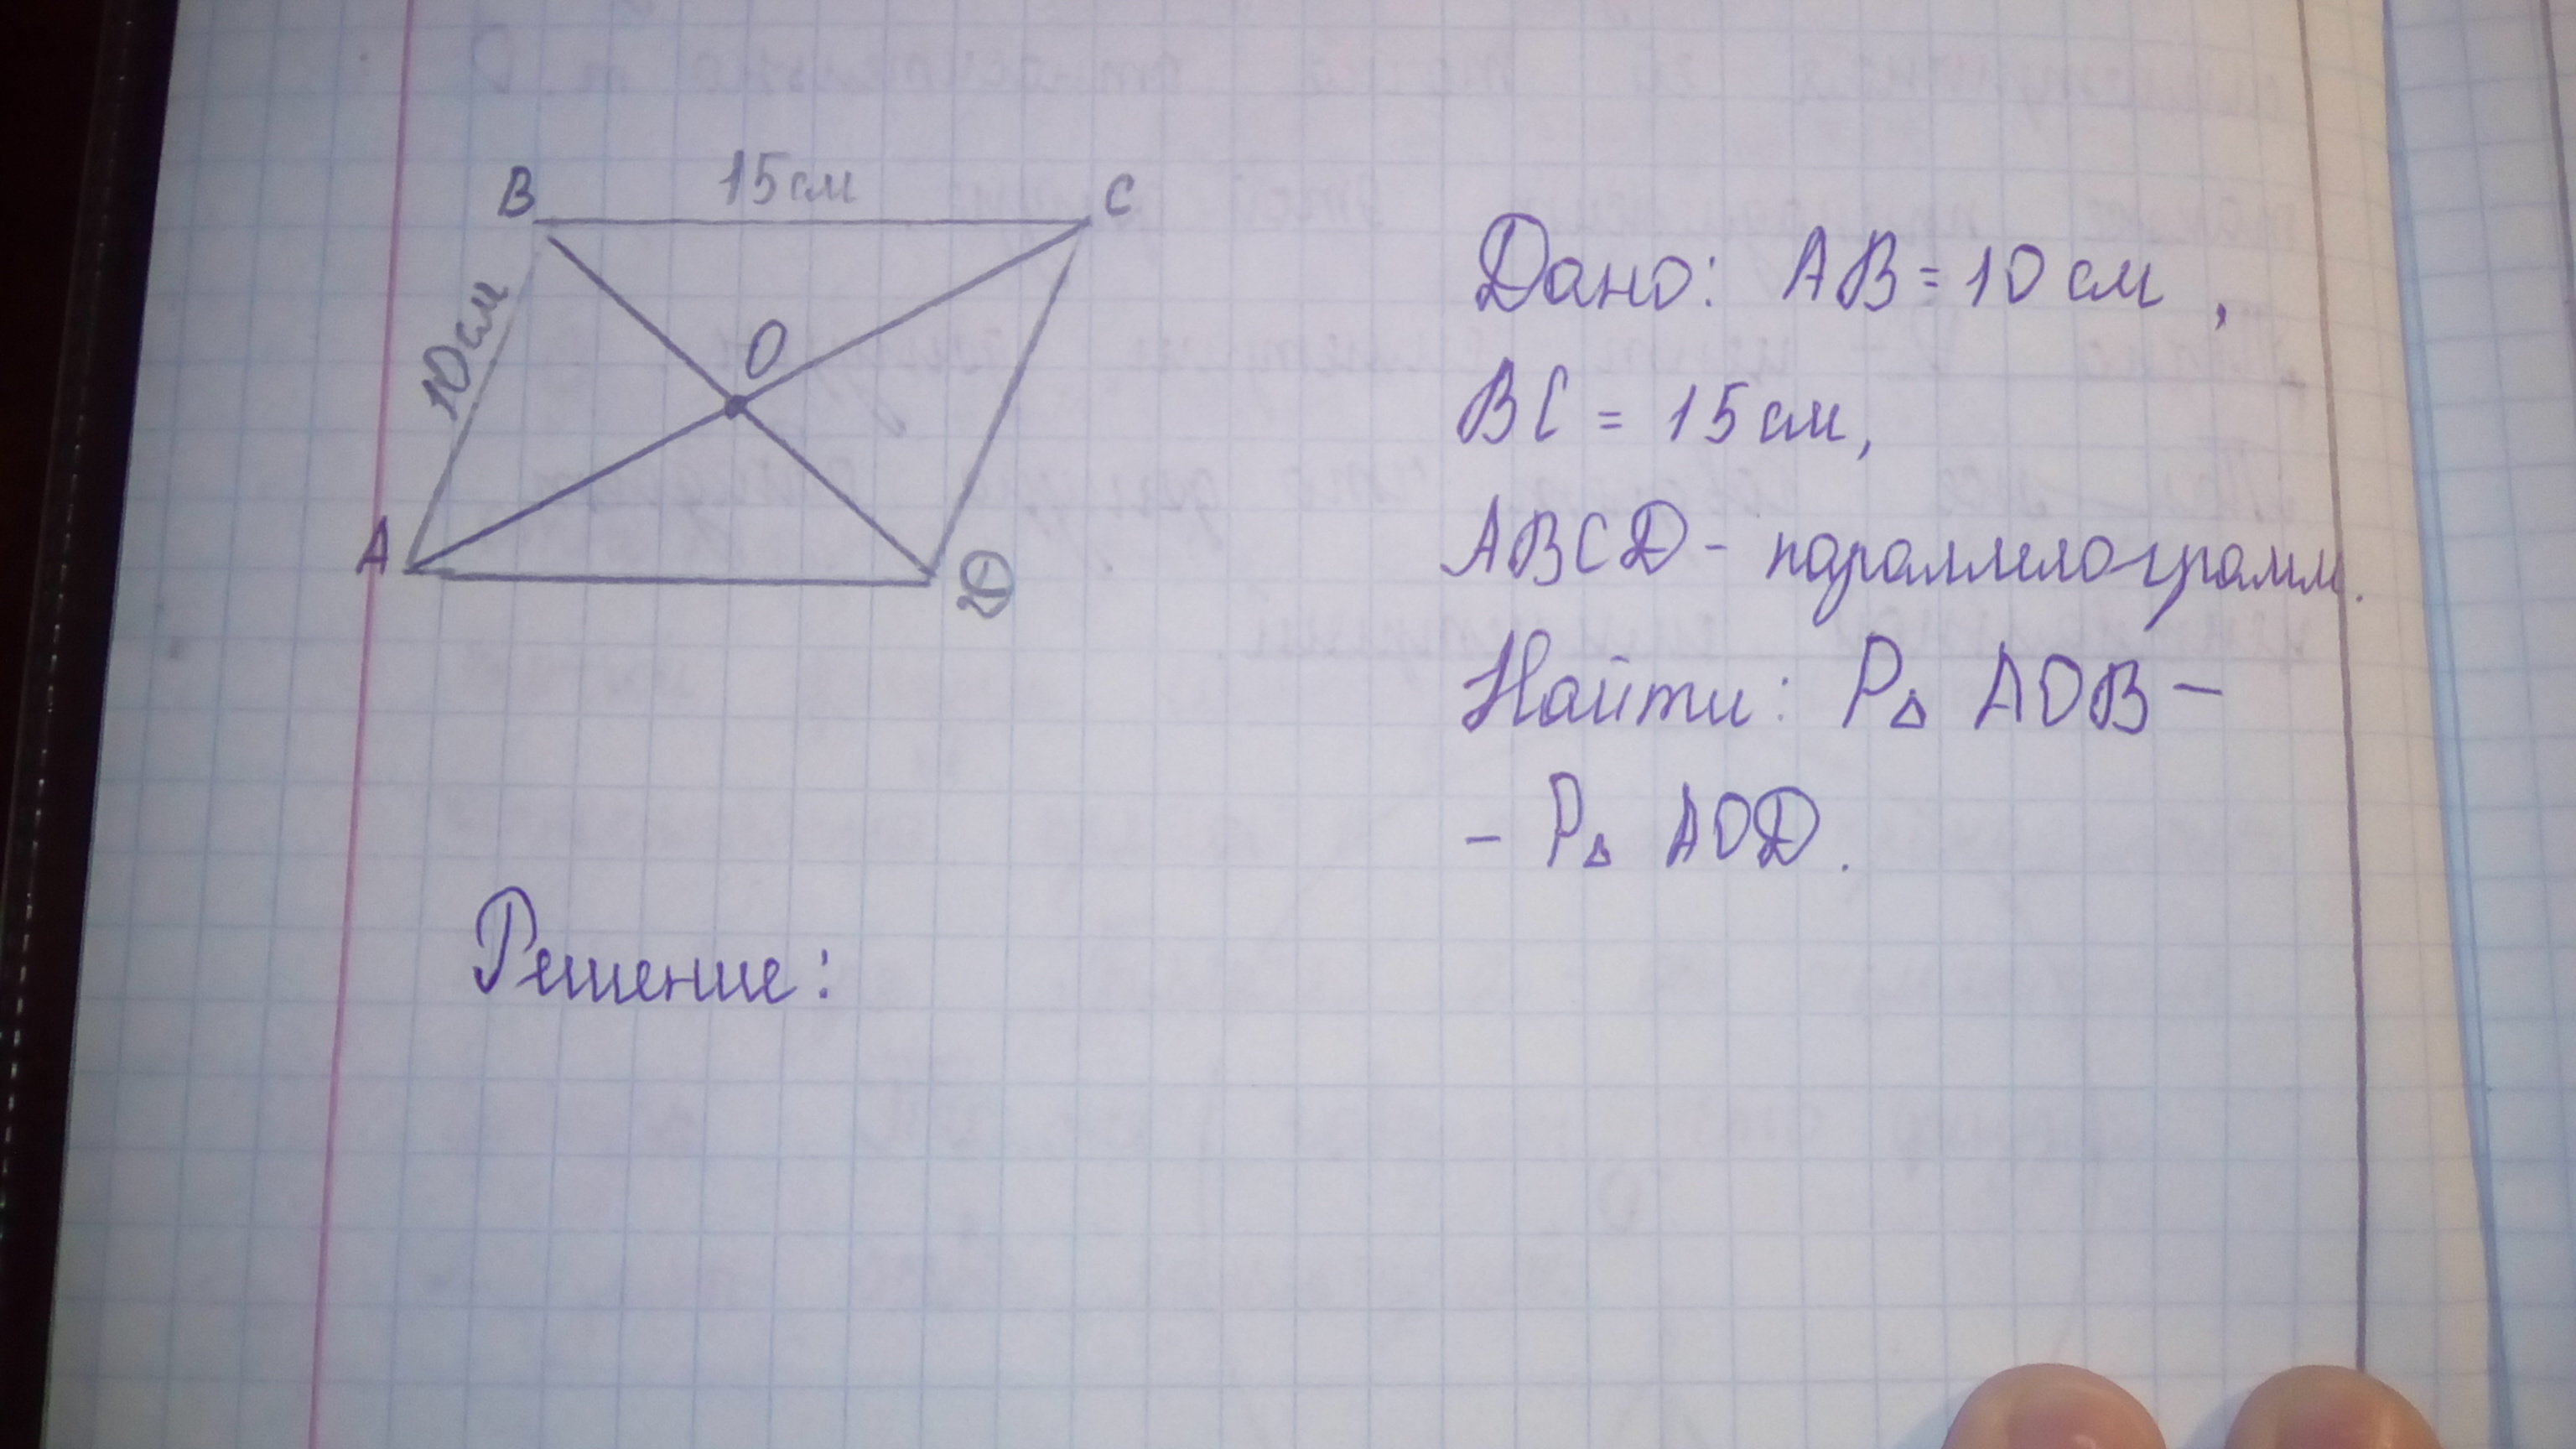 B 15см C
10см
O
A
D
Дано: AB = 10 см,
BC = 15 см,
ABCD - параллелограмм.
Найти: P△ AOB -
- P△ AOD.
Решение: